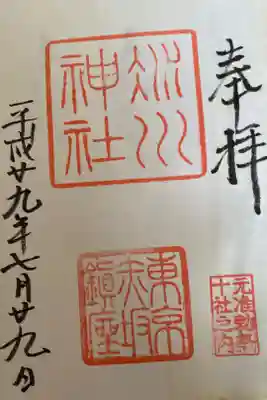 奉拝
元准勅祭
十社之内
冰川
神社
東京
赤坂
鎮座
平成廿九年七月廿九日